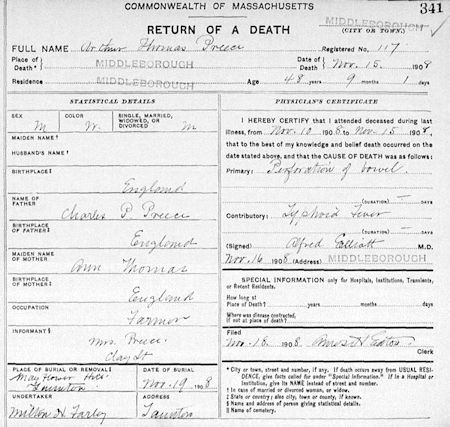 COMMONWEALTH OF MASSACHUSETTS
341
RETURN OF A DEATH
MIDDLEBOROUGH
(CITY OR TOWN.)
FULL NAME Arthur Thomas Preece Registered No. 117
Place of Death* MIDDLEBOROUGH
Date of Death Nov. 15. 1908
Residence MIDDLEBOROUGH
Age 48 years 9 months 1 days
STATISTICAL DETAILS
SEX M COLOR W. SINGLE, MARRIED, WIDOWED, OR DIVORCED M
MAIDEN NAME†
HUSBAND'S NAME†
BIRTHPLACE‡ England
NAME OF FATHER Charles P. Preece
BIRTHPLACE OF FATHER‡ England
MAIDEN NAME OF MOTHER Ann Thomas
BIRTHPLACE OF MOTHER‡ England
OCCUPATION Farmer
INFORMANT§ Mrs. Preece
Clay St
PLACE OF BURIAL OR REMOVAL‖ Mayflower Hill
Taunton
DATE OF BURIAL Nov. 19 1908
UNDERTAKER Milton H. Farley
ADDRESS Taunton
PHYSICIAN'S CERTIFICATE
I HEREBY CERTIFY that I attended deceased during last
illness, from Nov. 10 1908 to Nov. 15 1908,
that to the best of my knowledge and belief death occurred on the
date stated above, and that the CAUSE OF DEATH was as follows:
Primary: Perforation of bowel.
(DURATION) DAYS
Contributory: Typhoid Fever
(DURATION) DAYS
(Signed) Alfred Elliott M.D.
Nov. 16 1908 (Address) MIDDLEBOROUGH
SPECIAL INFORMATION only for Hospitals, Institutions, Transients,
or Recent Residents.
How long at Place of Death? Years Months Days
Where was disease contracted,
if not at place of death?
Filed
Nov. 18. 1908 Amos H Eaton Clerk
* City or town, street and number, if any. If death occurs away from USUAL RESIDENCE, give facts called for under "Special Information." If in a Hospital or
Institution, give its NAME instead of street and number.
† In case of married or divorced woman, or widow.
‡ State or country; also city, town or county, if known.
§ Name and address of person giving statistical details.
‖ Name of cemetery.